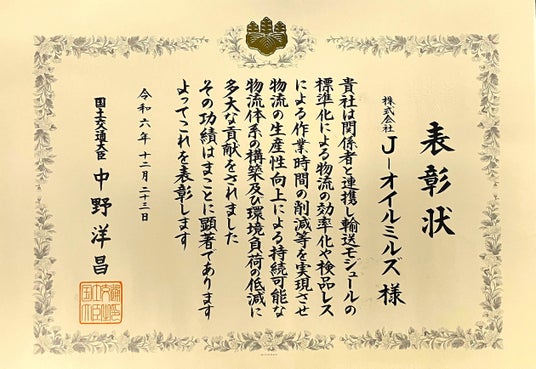 表彰状
株式会社 J－オイルミルズ 様
貴社は関係者と連携し輸送モジュールの
標準化による物流の効率化や検品レス
による作業時間の削減等を実現させ
物流の生産性向上による持続可能な
物流体系の構築及び環境負荷の低減に
多大な貢献をされました
その功績はまことに顕著であります
よってこれを表彰します
令和六年 十二月 二十三日
国土交通大臣 中野洋昌